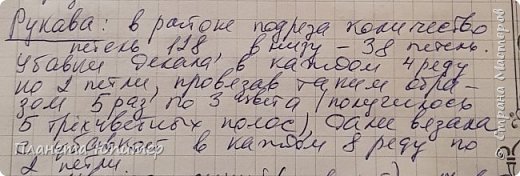 Рукава: в ростоке подреза количество
петель 118, внизу – 38 петель.
Убавки делала в каждом 4 ряду
по 2 петли, провязав таким обра-
зом 5 раз по 3 цвета (получилось
5 трёхцветных полос), далее вязала
убавки в каждом 8 ряду по
2 петли.
Планета Юпитер
© Страна Мастеров